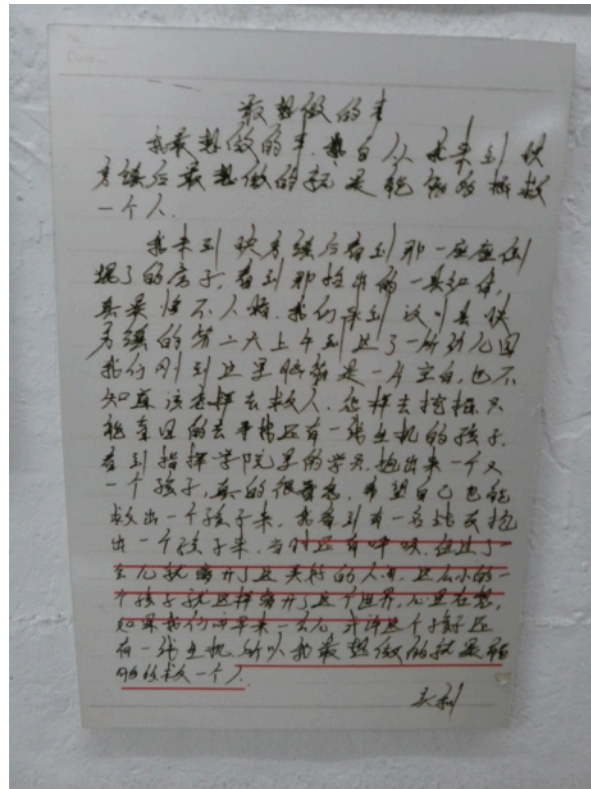 最想做的事
我最想做的事，我自从来到映
秀镇后最想做的就是能够的拯救
一个人。
我来到映秀镇后看到那一座座倒
塌了的房子，看到那抬出的一具具
真是惨不人睹，我们来到汶川县映
秀镇的第二天上午到达了一所幼儿园
我们刚到这里脑海是一片空白，也不
知道该怎样去救人，怎样去挖掘，只
能
的去寻找还有一线生机的孩子，
看到指挥学院里的学员，抱出来一个又
一个孩子，真的很着急，希望自己也能
救出一个孩子来，我看到有一名战友抱
出一个孩子来，当时还有呼吸，但过了一
会儿就离开了这美好的人间，这么小的一
个孩子就这样离开了这个世界，心里在想，
如果我们再早来一会儿，或许这个孩子还
有一线生机，所以我最想做的就是
的救一个人。